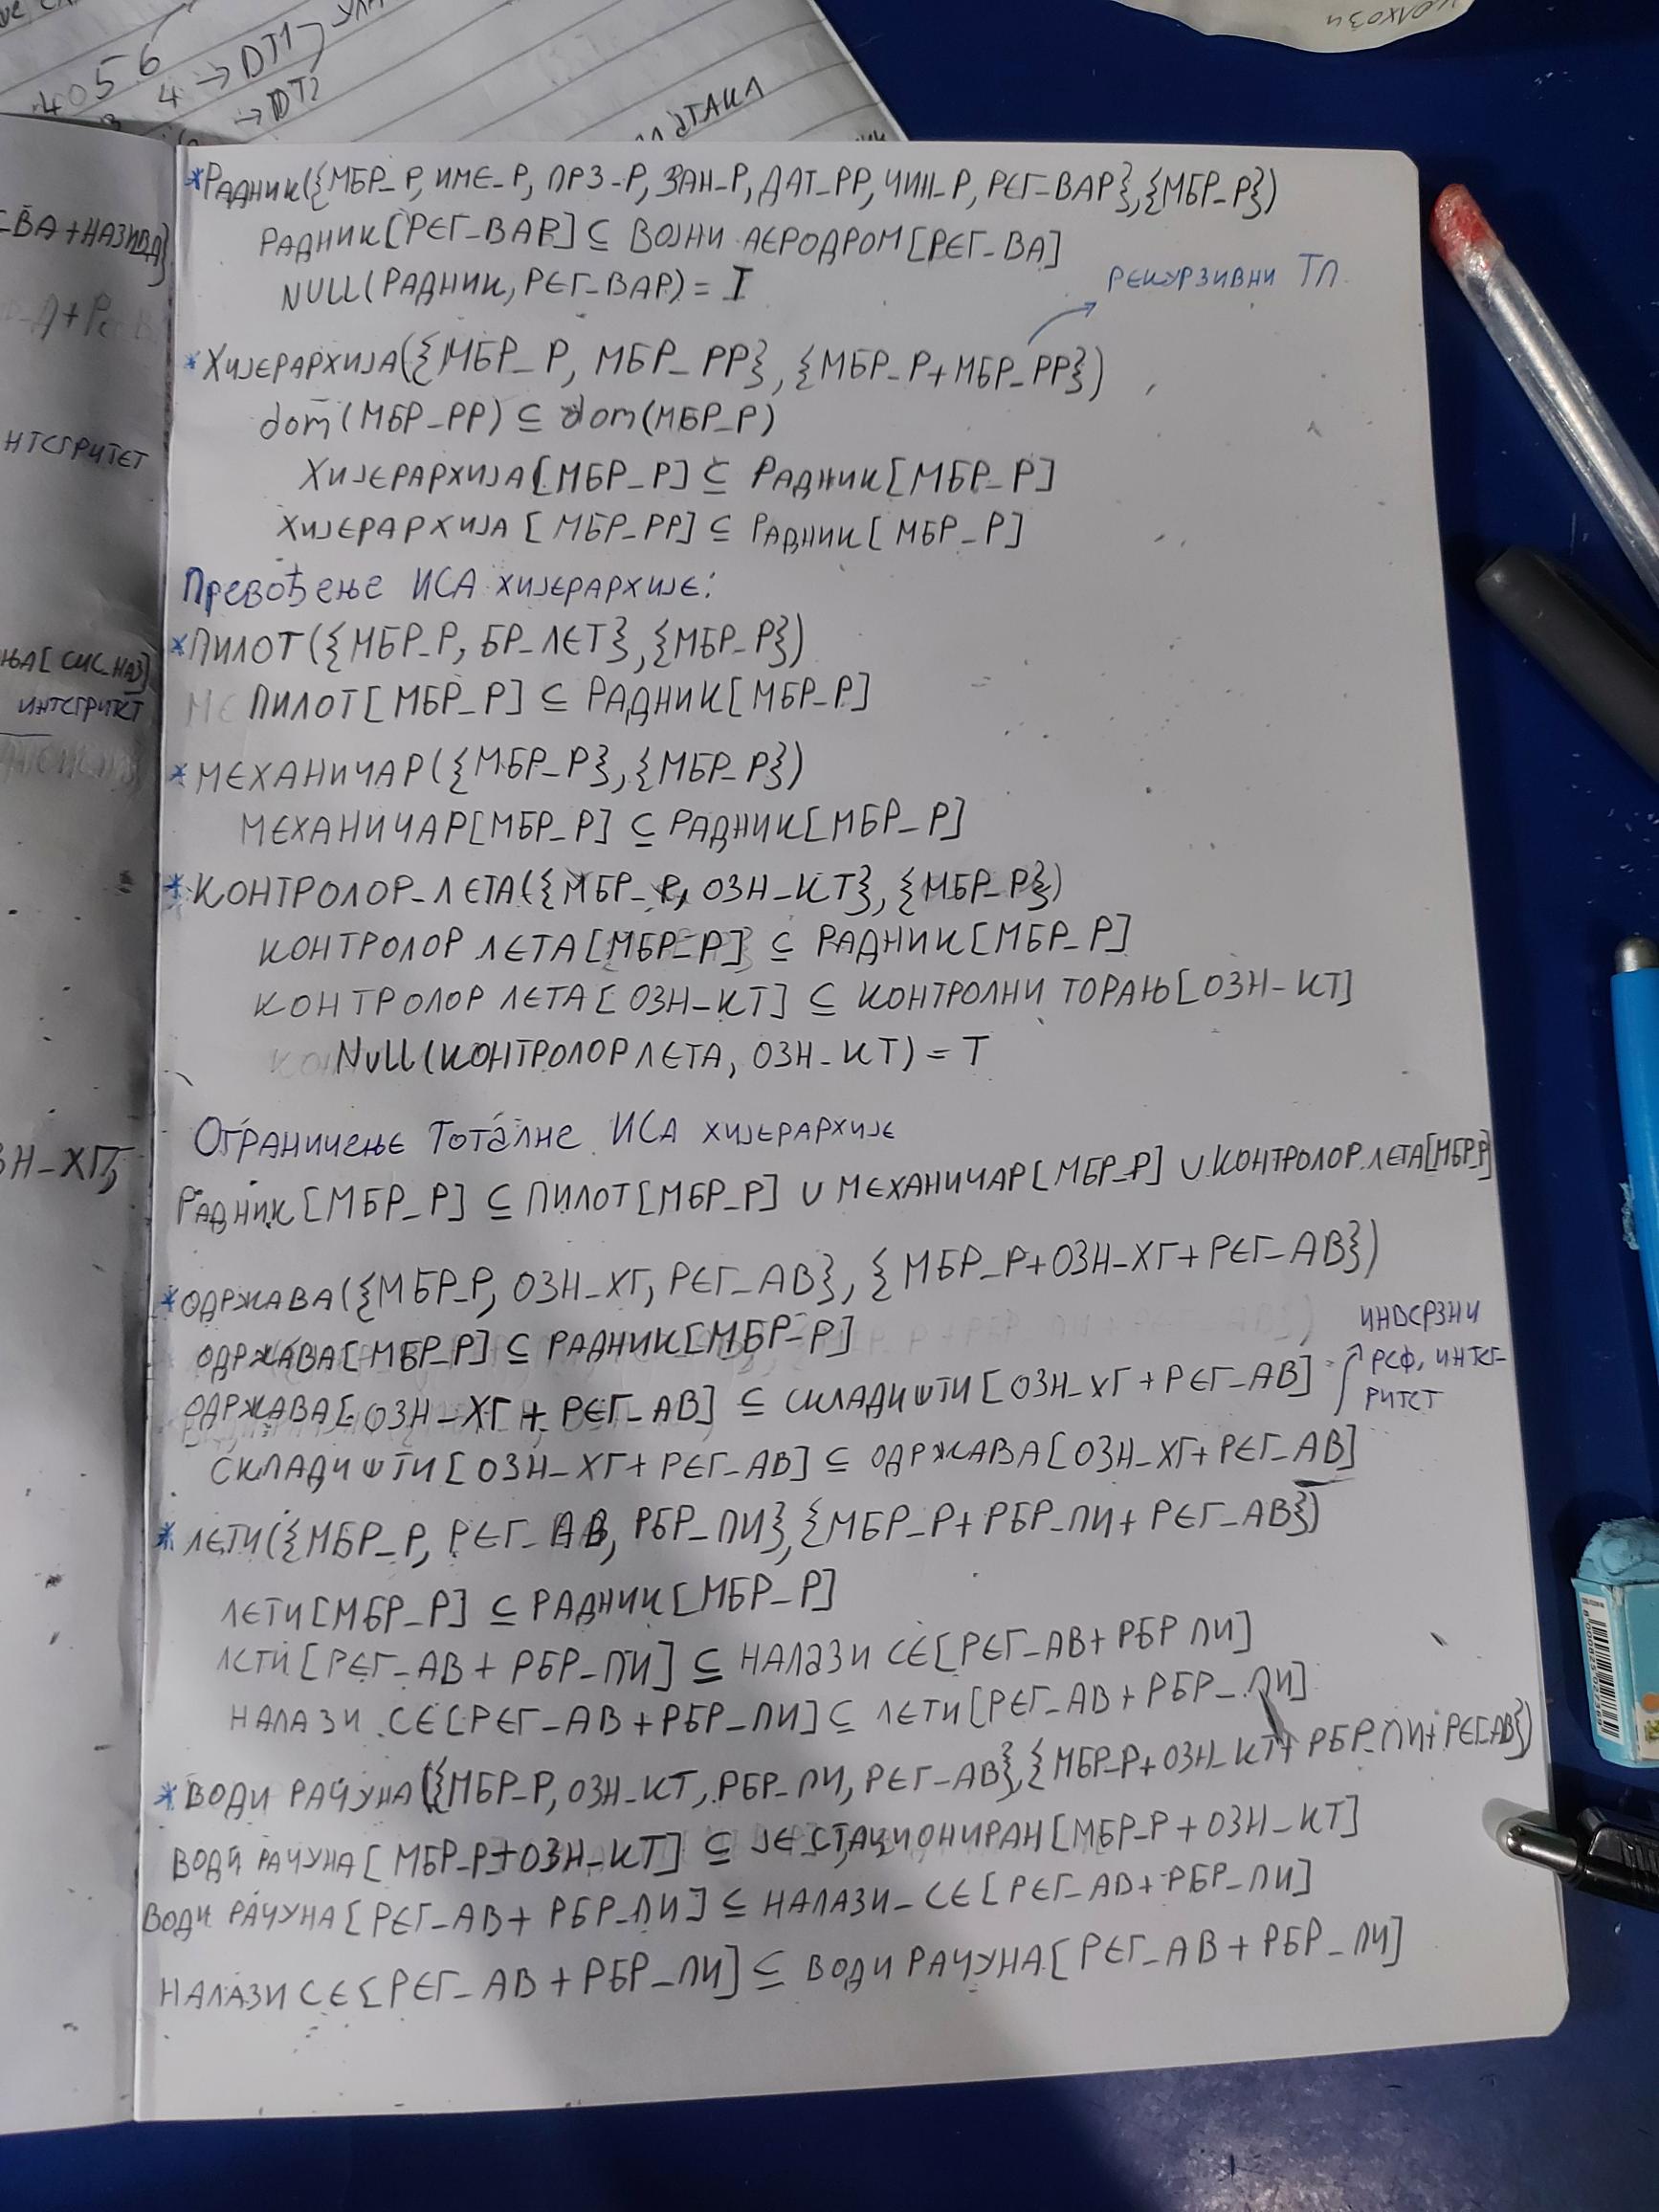 4056
4 → DT1
→ DT2
*РАДНИК({МБР_Р, ИМЕ_Р, ПРЗ_Р, ЗАН_Р, ДАТ_РР, ЧИН_Р, РЕГ_ВАР}, {МБР_Р})
РАДНИК[РЕГ_ВАР] ⊆ ВОЈНИ АЕРОДРОМ[РЕГ_ВА]
NULL(РАДНИК, РЕГ_ВАР) = ⊥
РЕКУРЗИВНИ ТП
*ХИЈЕРАРХИЈА({МБР_Р, МБР_РР}, {МБР_Р+МБР_РР})
dom(МБР_РР) ⊆ dom(МБР_Р)
ХИЈЕРАРХИЈА[МБР_Р] ⊆ РАДНИК[МБР_Р]
ХИЈЕРАРХИЈА[МБР_РР] ⊆ РАДНИК[МБР_Р]
Превођење ИСА хијерархије:
*ПИЛОТ({МБР_Р, БР_ЛЕТ}, {МБР_Р})
ПИЛОТ[МБР_Р] ⊆ РАДНИК[МБР_Р]
*МЕХАНИЧАР({МБР_Р}, {МБР_Р})
МЕХАНИЧАР[МБР_Р] ⊆ РАДНИК[МБР_Р]
*КОНТРОЛОР_ЛЕТА({МБР_Р, ОЗН_КТ}, {МБР_Р})
КОНТРОЛОР ЛЕТА[МБР_Р] ⊆ РАДНИК[МБР_Р]
КОНТРОЛОР ЛЕТА[ОЗН_КТ] ⊆ КОНТРОЛНИ ТОРАЊ[ОЗН_КТ]
NULL(КОНТРОЛОР ЛЕТА, ОЗН_КТ) = Т
Ограничење Тоталне ИСА хијерархије
РАДНИК[МБР_Р] ⊆ ПИЛОТ[МБР_Р] ∪ МЕХАНИЧАР[МБР_Р] ∪ КОНТРОЛОР ЛЕТА[МБР_Р]
*ОДРЖАВА({МБР_Р, ОЗН_ХГ, РЕГ_АВ}, {МБР_Р+ОЗН_ХГ+РЕГ_АВ})
ОДРЖАВА[МБР_Р] ⊆ РАДНИК[МБР_Р]
ОДРЖАВА[ОЗН_ХГ + РЕГ_АВ] ⊆ СКЛАДИШТИ[ОЗН_ХГ + РЕГ_АВ]
ИНВЕРЗНИ
РЕФ. ИНТЕГ-
РИТЕТ
СКЛАДИШТИ[ОЗН_ХГ + РЕГ_АВ] ⊆ ОДРЖАВА[ОЗН_ХГ + РЕГ_АВ]
*ЛЕТИ({МБР_Р, РЕГ_АВ, РБР_ПИ}, {МБР_Р+РБР_ПИ+РЕГ_АВ})
ЛЕТИ[МБР_Р] ⊆ РАДНИК[МБР_Р]
ЛЕТИ[РЕГ_АВ + РБР_ПИ] ⊆ НАЛАЗИ СЕ[РЕГ_АВ + РБР ПИ]
НАЛАЗИ СЕ[РЕГ_АВ + РБР_ПИ] ⊆ ЛЕТИ[РЕГ_АВ + РБР_ПИ]
*ВОДИ РАЧУНА({МБР_Р, ОЗН_КТ, РБР_ПИ, РЕГ_АВ}, {МБР_Р+ОЗН_КТ+РБР_ПИ+РЕГ_АВ})
ВОДИ РАЧУНА[МБР_Р+ОЗН_КТ] ⊆ ЈЕ СТАЦИОНИРАН[МБР_Р + ОЗН_КТ]
ВОДИ РАЧУНА[РЕГ_АВ + РБР_ПИ] ⊆ НАЛАЗИ_СЕ[РЕГ_АВ + РБР_ПИ]
НАЛАЗИ СЕ[РЕГ_АВ + РБР_ПИ] ⊆ ВОДИ РАЧУНА[РЕГ_АВ + РБР_ПИ]